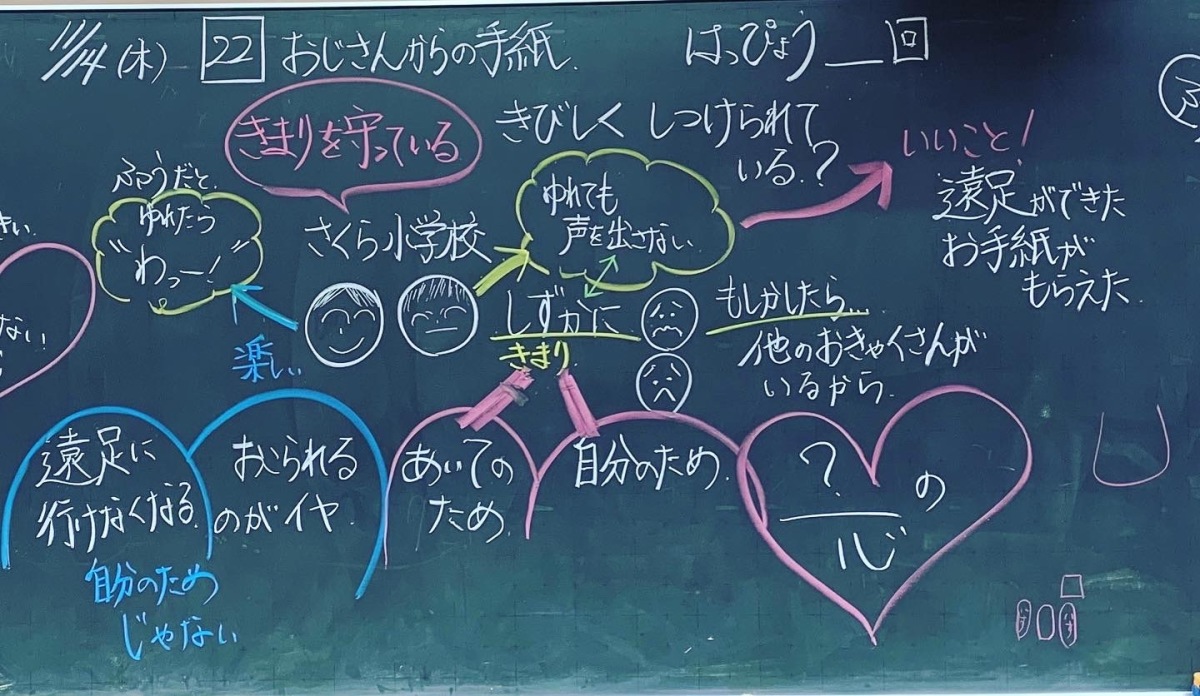 11/14 (木) 22 おじさんからの手紙 はっぴょう__回
きまりを守っている
きびしく しつけられて
いる?
いいこと!
遠足ができた
お手紙が
もらえた
ふつうだと
ゆれたら
"わっー!"
さくら小学校
ゆれても
声を出さない
しずかに
きまり
もしかしたら…
他のおきゃくさんが
いるから
楽しい
きい
ない!
遠足に
行けなくなる
おこられる
のがイヤ
自分のため
じゃない
あいての
ため
自分のため
?の
心
ふ